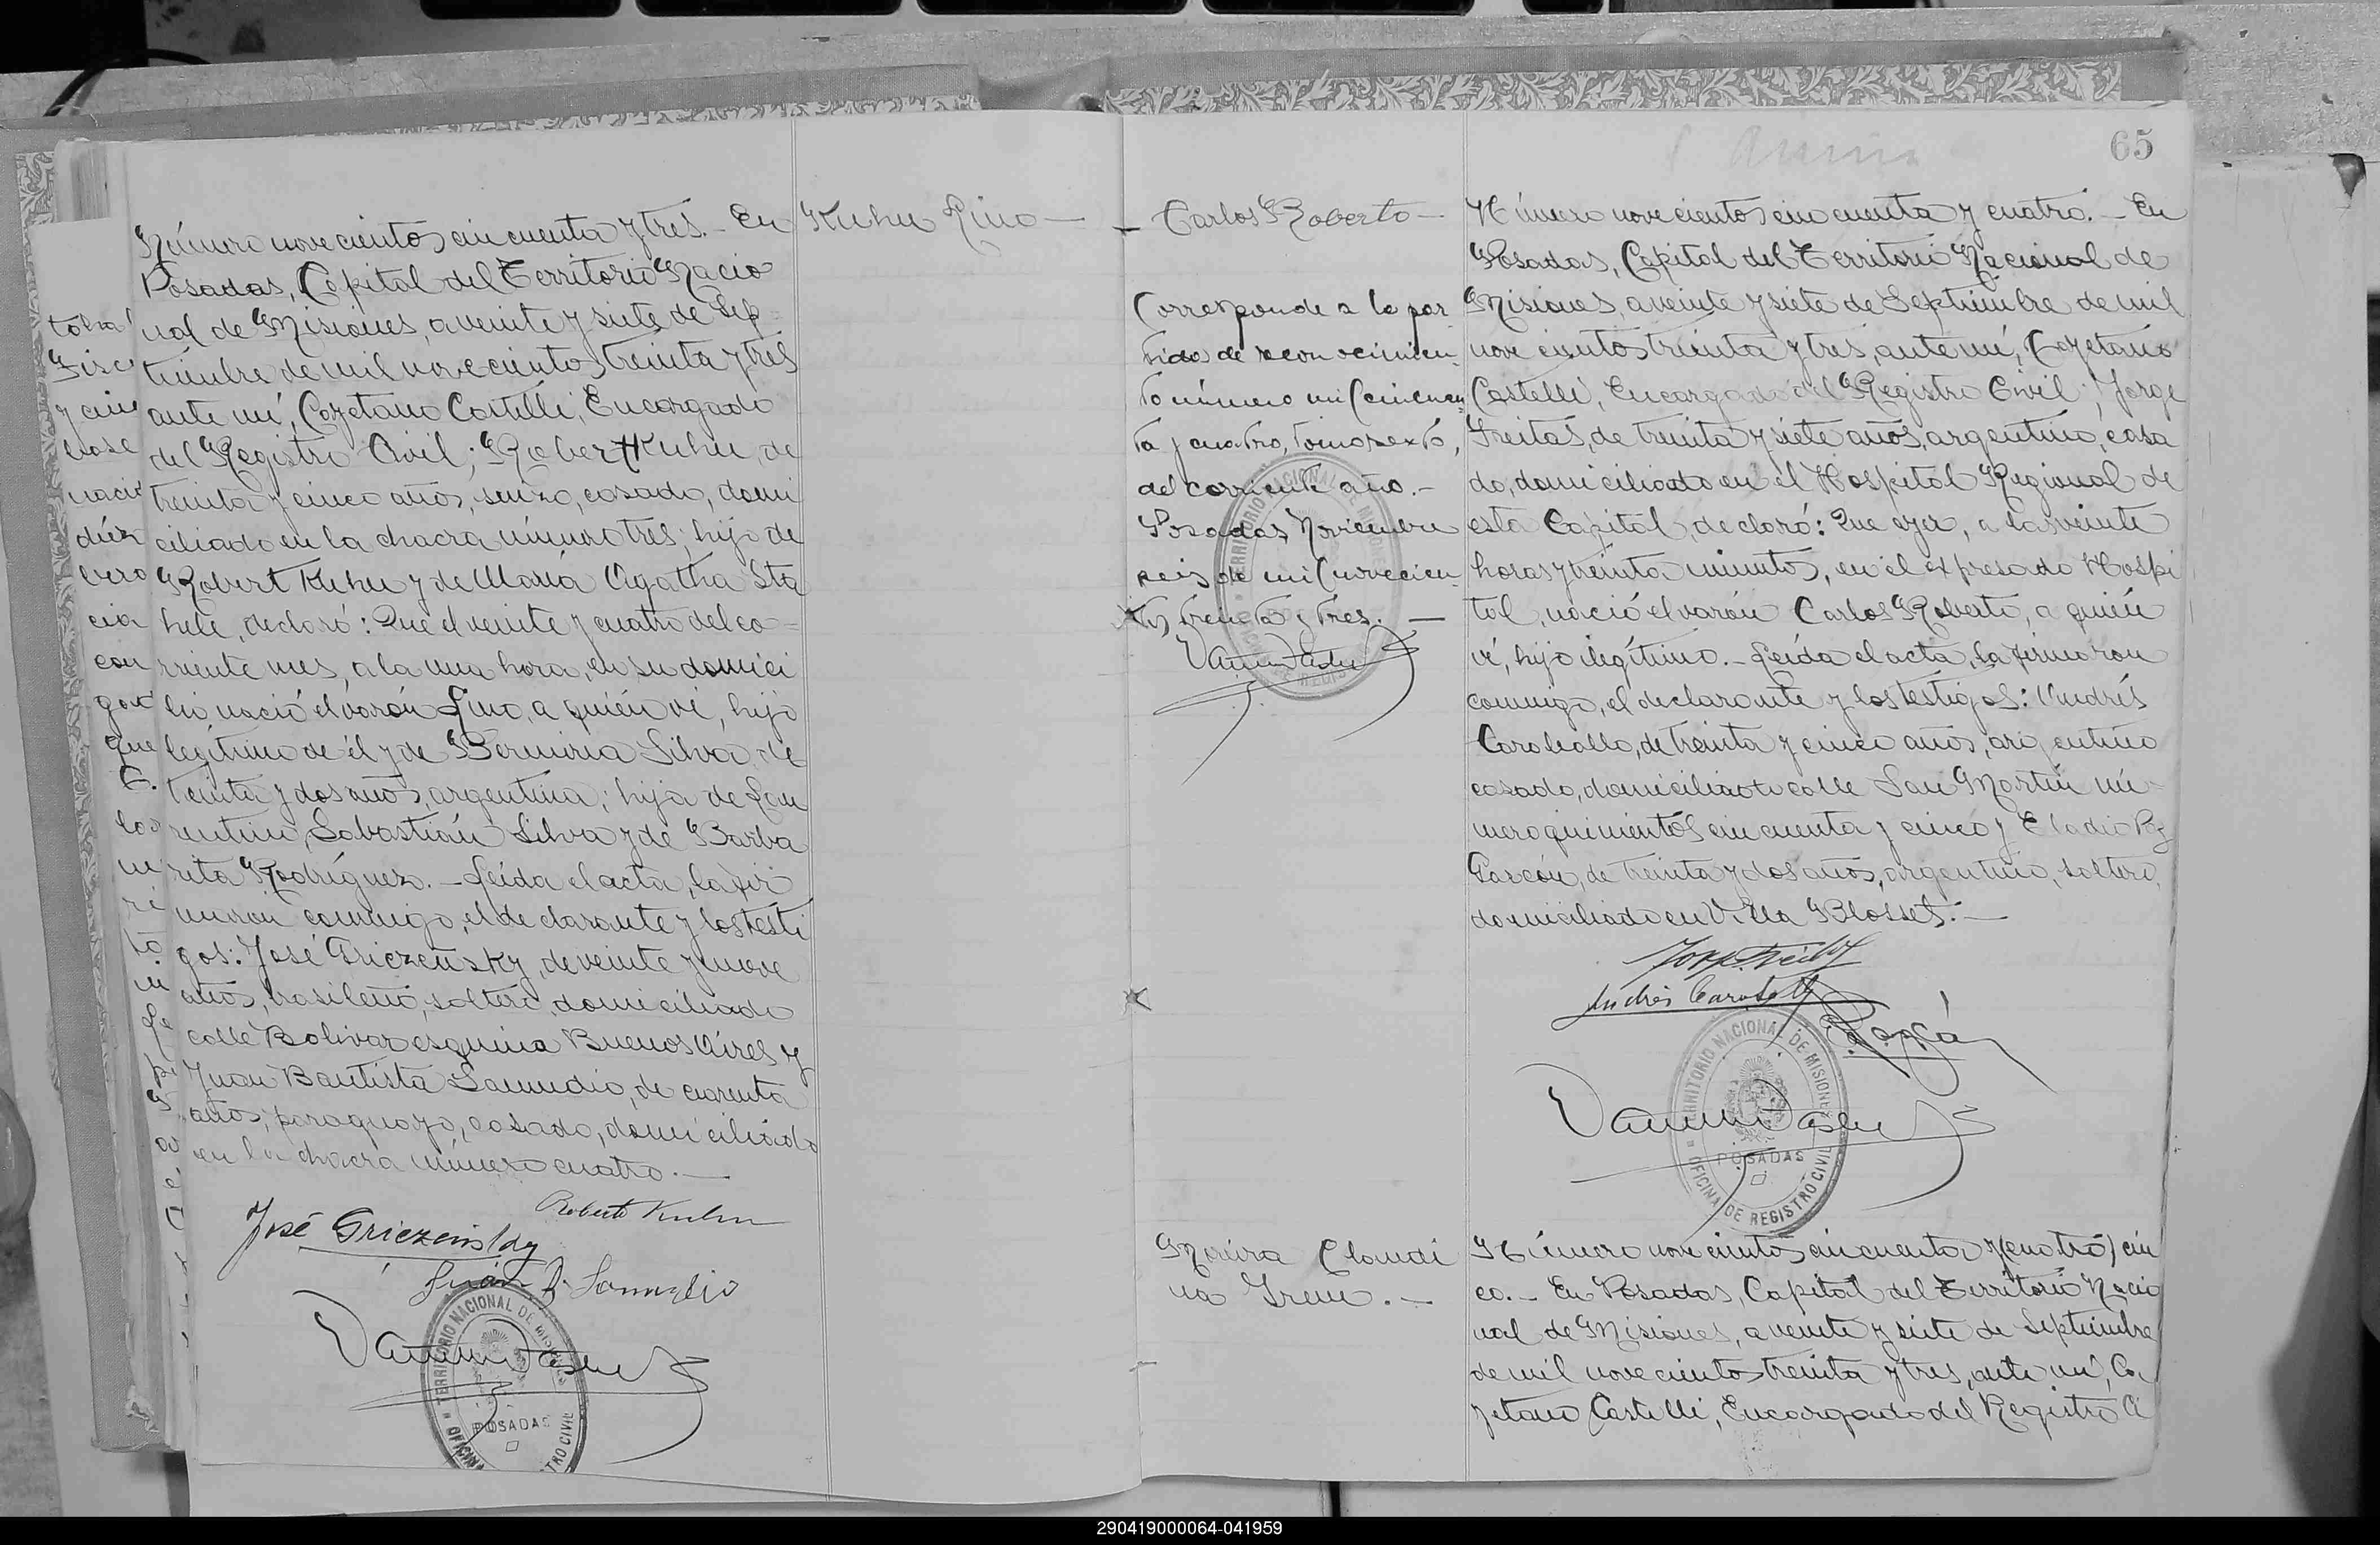 Número novecientos cincuenta y tres. - En
Posadas, Capital del Territorio Nacio
nal de Misiones, a veinte y siete de Sep-
tiembre de mil novecientos treinta y tres
ante mí, Cayetano Castelli, Encargado
del Registro Civil; Robert Kuhn, de
treinta y cinco años, suizo, casado, domi
ciliado en la chacra número tres; hijo de
Robert Kuhn y de María Agatha Sta
hele, declaró: Que el veinte y cuatro del co-
rriente mes, a la una hora, en su domici
lio nació el varón Lino, a quién ví, hijo
legítimo de él y de Berminia Silva, de
treinta y dos años, argentina; hija de
Sabastián Silva y de Barba
rita Rodríguez. - Leída el acta, la fir
maron conmigo, el declarante y los testi
gos: José Griezensky, de veinte y nueve
años, brasileño, soltero, domiciliado
calle Bolivar esquina Buenos Aires y
Juan Bautista Samudio, de cuarenta
años, paraguayo, casado, domiciliado
en la chacra número cuatro. -
Roberto Kuhn
José Griezensky
Juan B. Samudio
TERRITORIO NACIONAL DE MISIONES
POSADAS
Kuhn Lino -
- Carlos Roberto -
Corresponde a la par-
tida de reconocimien-
to número mil cincuen-
ta y cuatro, tomo sexto,
del corriente año. -
Posadas, Noviembre
seis de mil novecien-
tos treinta y tres. -
65
Número novecientos cincuenta y cuatro. - En
Posadas, Capital del Territorio Nacional de
Misiones, a veinte y siete de Septiembre de mil
novecientos treinta y tres, ante mí, Cayetano
Castelli, Encargado del Registro Civil; Jorge
Freitas, de treinta y siete años, argentino, casa
do, domiciliado en el Hospital Regional de
esta Capital, declaró: Que ayer, a las veinte
horas y treinta minutos, en el expresado Hospi
tal, nació el varón Carlos Roberto, a quién
ví, hijo ilegítimo. - Leída el acta, la firmaron
conmigo, el declarante y los testigos: Andrés
Caraballo, de treinta y cinco años, argentino
casado, domiciliado calle San Martín nú-
mero quinientos cincuenta y cinco y Eladio
Garzón, de treinta y dos años, argentino, soltero,
domiciliado en Villa Blosset. -
Andrés Caraballo
TERRITORIO NACIONAL DE MISIONES
POSADAS
OFICINA DE REGISTRO CIVIL
Moreira Claudi
na Irene. -
Número novecientos cincuenta y (cuatro) cin
co. - En Posadas, Capital del Territorio Nacio
nal de Misiones, a veinte y siete de Septiembre
de mil novecientos treinta y tres, ante mí, Ca
yetano Castelli, Encargado del Registro Ci
290419000064-041959